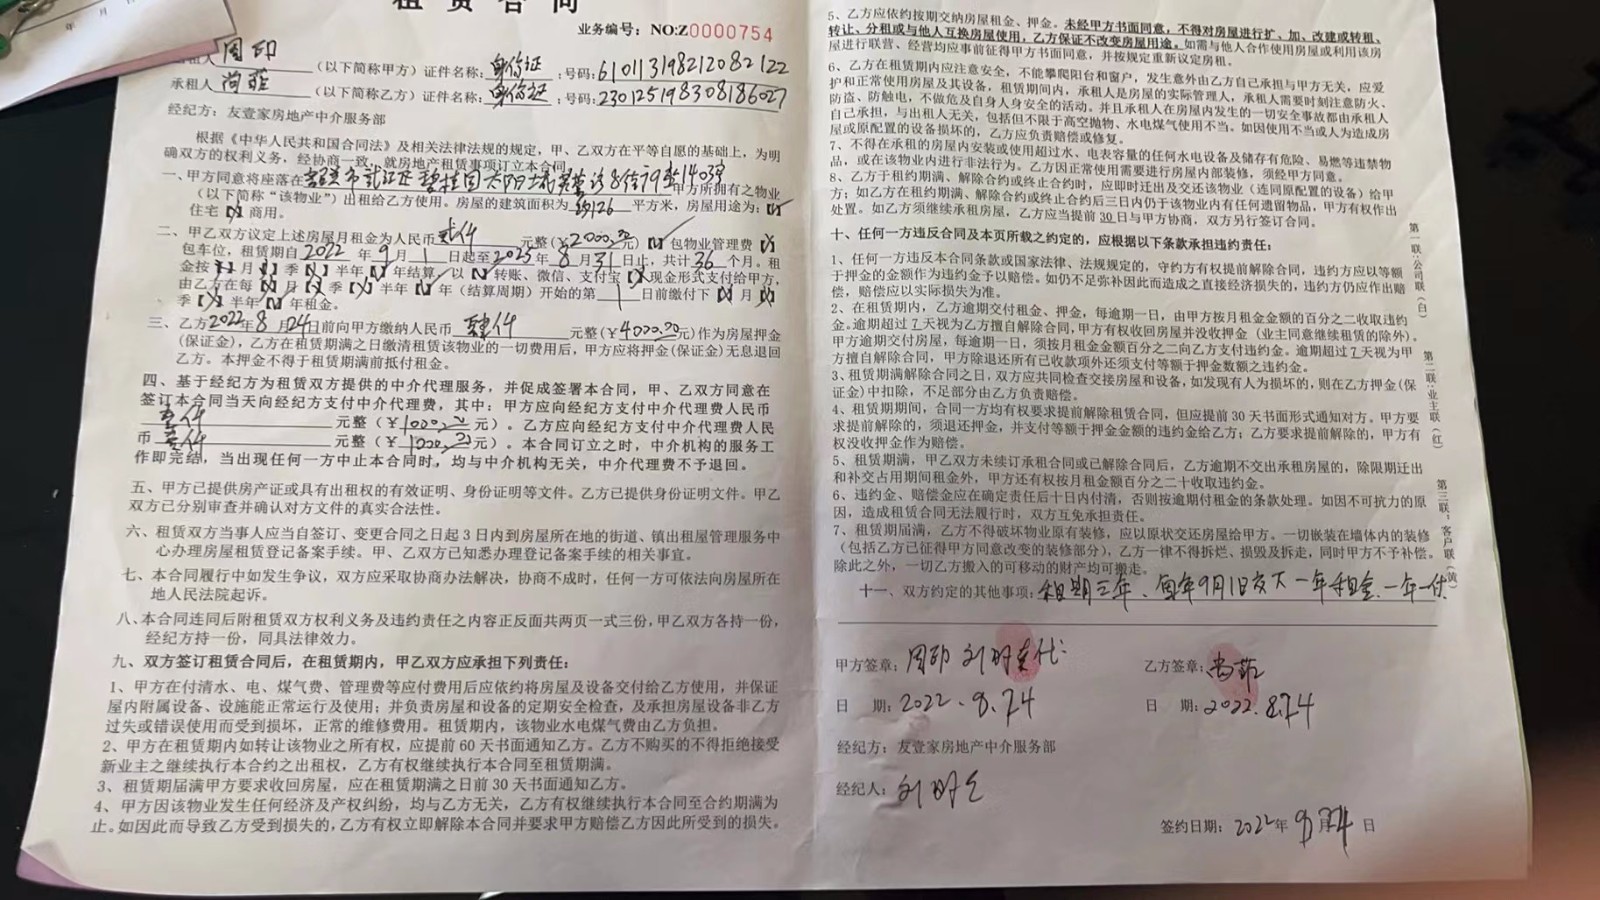 租赁合同
年 月 日
业务编号：NO:Z0000754
出租人 周印 （以下简称甲方）证件名称：身份证：号码：610113198212082122
承租人 尚菲 （以下简称乙方）证件名称：身份证：号码：230125198308186027
经纪方：友壹家房地产中介服务部
根据《中华人民共和国合同法》及相关法律法规的规定，甲、乙双方在平等自愿的基础上，为明
确双方的权利义务，经协商一致，就房地产租赁事项订立本合同。
一、甲方同意将座落在 碧桂园太阳城 8街79 1403 甲方所拥有之物业
（以下简称“该物业”）出租给乙方使用。房屋的建筑面积为 约126 平方米，房屋用途为：【】
住宅【】商用。
二、甲乙双方议定上述房屋月租金为人民币 贰仟 元整（¥2000.00元）【】包物业管理费【】
包车位，租赁期自2022年9月1日起至2025年8月31日止，共计36个月。租
金按【】月【】季【】半年【】年结算，以【】转账、微信、支付宝【】现金形式支付给甲方，
由乙方在每【】月【】季【】半年【】年（结算周期）开始的第 1 日前缴付下【】月【】
季【】半年【】年租金。
三、乙方2022年8月24日前向甲方缴纳人民币 肆仟 元整（¥4000.00元）作为房屋押金
（保证金），乙方在租赁期满之日缴清租赁该物业的一切费用后，甲方应将押金（保证金）无息退回
乙方。本押金不得于租赁期满前抵付租金。
四、基于经纪方为租赁双方提供的中介代理服务，并促成签署本合同，甲、乙双方同意在
签订本合同当天向经纪方支付中介代理费，其中：甲方应向经纪方支付中介代理费人民币
壹仟 元整（¥1000.00元）。乙方应向经纪方支付中介代理费人民
币 壹仟 元整（¥1000.00元）。本合同订立之时，中介机构的服务工
作即完结，当出现任何一方中止本合同时，均与中介机构无关，中介代理费不予退回。
五、甲方已提供房产证或具有出租权的有效证明、身份证明等文件。乙方已提供身份证明文件。甲乙
双方已分别审查并确认对方文件的真实合法性。
六、租赁双方当事人应当自签订、变更合同之日起3日内到房屋所在地的街道、镇出租屋管理服务中
心办理房屋租赁登记备案手续。甲、乙双方已知悉办理登记备案手续的相关事宜。
七、本合同履行中如发生争议，双方应采取协商办法解决，协商不成时，任何一方可依法向房屋所在
地人民法院起诉。
八、本合同连同后附租赁双方权利义务及违约责任之内容正反面共两页一式三份，甲乙双方各持一份，
经纪方持一份，同具法律效力。
九、双方签订租赁合同后，在租赁期内，甲乙双方应承担下列责任：
1、甲方在付清水、电、煤气费、管理费等应付费用后应依约将房屋及设备交付给乙方使用，并保证
屋内附属设备、设施能正常运行及使用；并负责房屋和设备的定期安全检查，及承担房屋设备非乙方
过失或错误使用而受到损坏，正常的维修费用。租赁期内，该物业水电煤气费由乙方负担。
2、甲方在租赁期内如转让该物业之所有权，应提前60天书面通知乙方。乙方不购买的不得拒绝接受
新业主之继续执行本合约之出租权，乙方有权继续执行本合同至租赁期满。
3、租赁期届满甲方要求收回房屋，应在租赁期满之日前30天书面通知乙方。
4、甲方因该物业发生任何经济及产权纠纷，均与乙方无关，乙方有权继续执行本合同至合约期满为
止。如因此而导致乙方受到损失的，乙方有权立即解除本合同并要求甲方赔偿乙方因此所受到的损失。
5、乙方应依约按期交纳房屋租金、押金。未经甲方书面同意，不得对房屋进行扩、加、改建或转租、
转让、分租或与他人互换房屋使用，乙方保证不改变房屋用途。如需与他人合作使用房屋或利用该房
屋进行联营、经营均应事前征得甲方书面同意，并按规定重新议定房租。
6、乙方在租赁期内应注意安全，不能攀爬阳台和窗户，发生意外由乙方自己承担与甲方无关，应爱
护和正常使用房屋及其设备，租赁期间内，承租人是房屋的实际管理人，承租人需要时刻注意防火、
防盗、防触电，不做危及自身人身安全的活动。并且承租人在房屋内发生的一切安全事故都由承租人
自己承担，与出租人无关，包括但不限于高空抛物、水电煤气使用不当。如因使用不当或人为造成房
屋或原配置的设备损坏的，乙方应负责赔偿或修复。
7、不得在承租的房屋内安装或使用超过水、电表容量的任何水电设备及储存有危险、易燃等违禁物
品，或在该物业内进行非法行为。乙方因正常使用需要进行房屋内部装修，须经甲方同意。
8、乙方于租约期满、解除合约或终止合约时，应即时迁出及交还该物业（连同原配置的设备）给甲
方；如乙方在租约期满、解除合约或终止合约后三日内仍于该物业内有任何遗留物品，甲方有权作出
处置。如乙方须继续承租房屋，乙方应当提前30日与甲方协商，双方另行签订合同。
十、任何一方违反合同及本页所载之约定的，应根据以下条款承担违约责任：
1、任何一方违反本合同条款或国家法律、法规规定的，守约方有权提前解除合同，违约方应以等额
于押金的金额作为违约金予以赔偿。如仍不足弥补因此而造成之直接经济损失的，违约方仍应作出赔
偿，赔偿应以实际损失为准。
2、在租赁期内，乙方逾期交付租金、押金，每逾期一日，由甲方按月租金金额的百分之二收取违约
金。逾期超过7天视为乙方擅自解除合同，甲方有权收回房屋并没收押金（业主同意继续租赁的除外）。
甲方逾期交付房屋，每逾期一日，须按月租金金额百分之二向乙方支付违约金。逾期超过7天视为甲
方擅自解除合同，甲方除退还所有已收款项外还须支付等额于押金数额之违约金。
3、租赁期满解除合同之日，双方应共同检查交接房屋和设备，如发现有人为损坏的，则在乙方押金（保
证金）中扣除，不足部分由乙方负责赔偿。
4、租赁期期间，合同一方均有权要求提前解除租赁合同，但应提前30天书面形式通知对方。甲方要
求提前解除的，须退还押金，并支付等额于押金金额的违约金给乙方；乙方要求提前解除的，甲方有
权没收押金作为赔偿。
5、租赁期满，甲乙双方未续订承租合同或已解除合同后，乙方逾期不交出承租房屋的，除限期迁出
和补交占用期间租金外，甲方还有权按月租金额百分之二十收取违约金。
6、违约金、赔偿金应在确定责任后十日内付清，否则按逾期付租金的条款处理。如因不可抗力的原
因，造成租赁合同无法履行时，双方互免承担责任。
7、租赁期届满，乙方不得破坏物业原有装修，应以原状交还房屋给甲方。一切嵌装在墙体内的装修
（包括乙方已征得甲方同意改变的装修部分），乙方一律不得拆烂、损毁及拆走，同时甲方不予补偿。
除此之外，一切乙方搬入的可移动的财产均可搬走。
十一、双方约定的其他事项：租期三年、每年9月1日交下一年租金.一年一付.
甲方签章：周印 刘时 代
乙方签章：尚菲
日 期：2022.8.24
日 期：2022.8.24
经纪方：友壹家房地产中介服务部
经纪人：刘时
签约日期：2022年8月24日
第一联：公司联（白）
第二联：业主联（红）
第三联：客户联（黄）